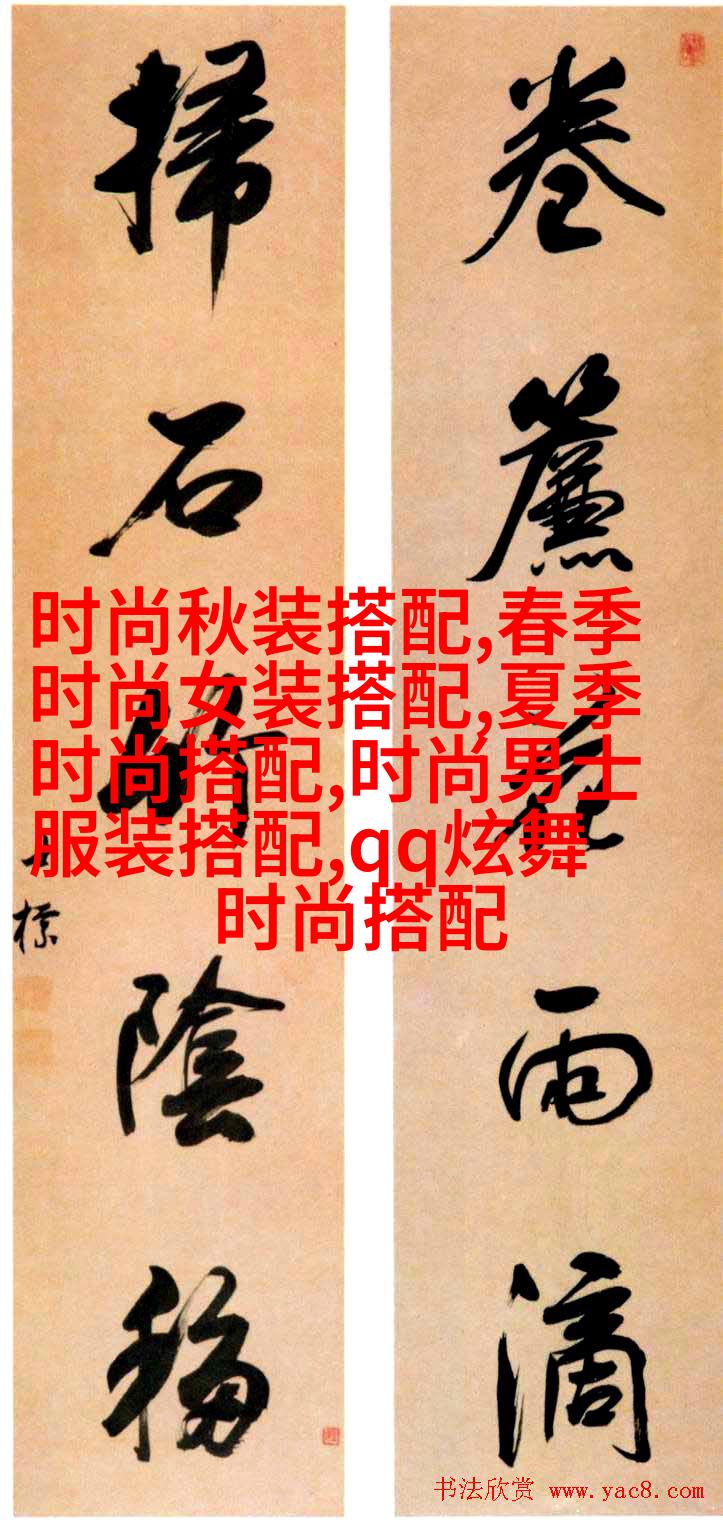 卷簾花雨滴
掃石竹陰移
士標
时尚秋装搭配,春季
时尚女装搭配,夏季
时尚搭配,时尚男士
服装搭配,qq炫舞
时尚搭配
书法欣赏 www.yac8.com